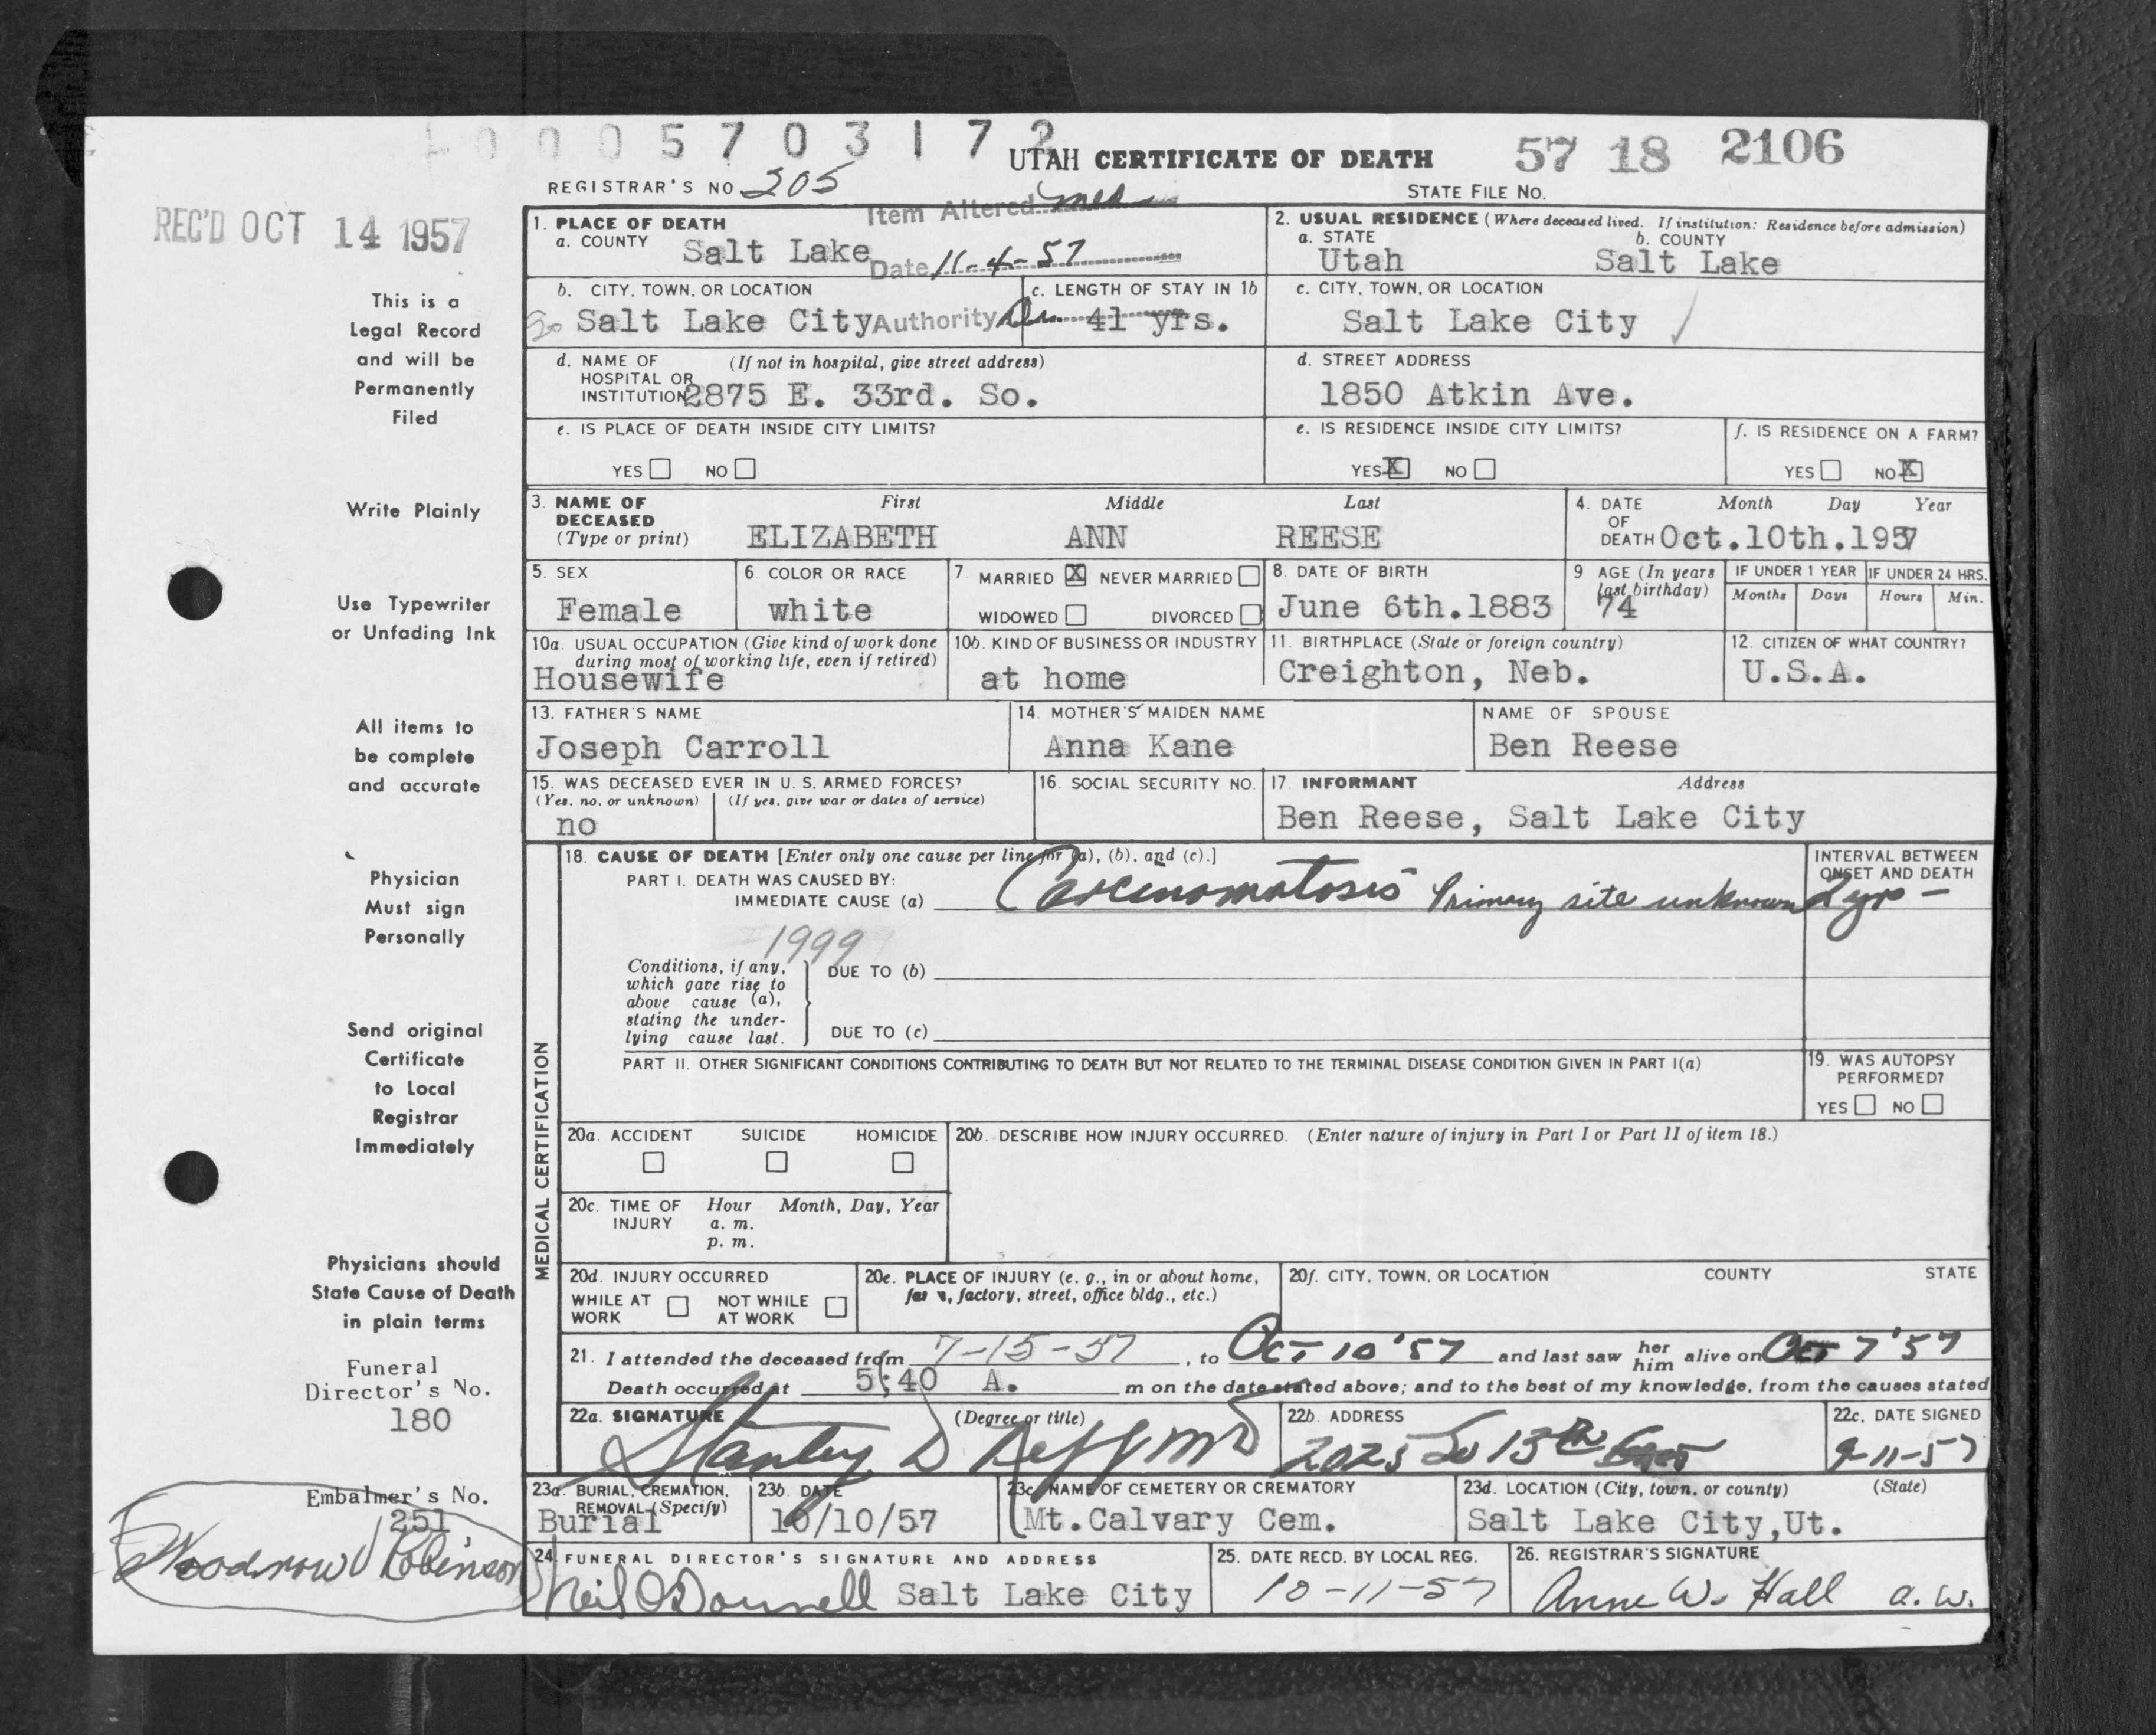 0 0 0 5 7 0 3 1 7 2
UTAH CERTIFICATE OF DEATH
57 18 2106
REGISTRAR'S NO 205
STATE FILE NO.
REC'D OCT 14 1957
Item Altered med
Date 11-4-57
Authority
This is a
Legal Record
and will be
Permanently
Filed
Write Plainly
Use Typewriter
or Unfading Ink
All items to
be complete
and accurate
Physician
Must sign
Personally
Send original
Certificate
to Local
Registrar
Immediately
Physicians should
State Cause of Death
in plain terms
Funeral
Director's No.
180
Embalmer's No.
251
Woodrow Robinson
1. PLACE OF DEATH
a. COUNTY
Salt Lake
2. USUAL RESIDENCE (Where deceased lived. If institution: Residence before admission)
a. STATE
Utah
b. COUNTY
Salt Lake
b. CITY, TOWN, OR LOCATION
So Salt Lake City
c. LENGTH OF STAY IN 1b
41 yrs.
c. CITY, TOWN, OR LOCATION
Salt Lake City
d. NAME OF (If not in hospital, give street address)
HOSPITAL OR
INSTITUTION 2875 E. 33rd. So.
d. STREET ADDRESS
1850 Atkin Ave.
e. IS PLACE OF DEATH INSIDE CITY LIMITS?
YES NO
e. IS RESIDENCE INSIDE CITY LIMITS?
YES X NO
f. IS RESIDENCE ON A FARM?
YES NO X
3. NAME OF
DECEASED
(Type or print)
First Middle Last
ELIZABETH ANN REESE
4. DATE Month Day Year
OF
DEATH Oct.10th.1957
5. SEX
Female
6 COLOR OR RACE
white
7 MARRIED X NEVER MARRIED
WIDOWED DIVORCED
8. DATE OF BIRTH
June 6th.1883
9 AGE (In years
last birthday)
74
IF UNDER 1 YEAR IF UNDER 24 HRS.
Months Days Hours Min.
10a. USUAL OCCUPATION (Give kind of work done
during most of working life, even if retired)
Housewife
10b. KIND OF BUSINESS OR INDUSTRY
at home
11. BIRTHPLACE (State or foreign country)
Creighton, Neb.
12. CITIZEN OF WHAT COUNTRY?
U.S.A.
13. FATHER'S NAME
Joseph Carroll
14. MOTHER'S MAIDEN NAME
Anna Kane
NAME OF SPOUSE
Ben Reese
15. WAS DECEASED EVER IN U. S. ARMED FORCES?
(Yes, no, or unknown) (If yes, give war or dates of service)
no
16. SOCIAL SECURITY NO.
17. INFORMANT Address
Ben Reese, Salt Lake City
MEDICAL CERTIFICATION
18. CAUSE OF DEATH [Enter only one cause per line for (a), (b), and (c).]
PART I. DEATH WAS CAUSED BY:
IMMEDIATE CAUSE (a) Carcinomatosis Primary site unknown
INTERVAL BETWEEN
ONSET AND DEATH
2 yrs -
1999
Conditions, if any,
which gave rise to
above cause (a),
stating the under-
lying cause last.
DUE TO (b)
DUE TO (c)
PART II. OTHER SIGNIFICANT CONDITIONS CONTRIBUTING TO DEATH BUT NOT RELATED TO THE TERMINAL DISEASE CONDITION GIVEN IN PART I(a)
19. WAS AUTOPSY
PERFORMED?
YES NO
20a. ACCIDENT SUICIDE HOMICIDE
20b. DESCRIBE HOW INJURY OCCURRED. (Enter nature of injury in Part I or Part II of item 18.)
20c. TIME OF Hour Month, Day, Year
INJURY a. m.
p. m.
20d. INJURY OCCURRED
WHILE AT NOT WHILE
WORK AT WORK
20e. PLACE OF INJURY (e. g., in or about home,
factory, street, office bldg., etc.)
20f. CITY, TOWN, OR LOCATION COUNTY STATE
21. I attended the deceased from 7-15-57, to Oct 10 '57 and last saw her him alive on Oct 7 '57
Death occurred at 5:40 A. m on the date stated above; and to the best of my knowledge, from the causes stated
22a. SIGNATURE (Degree or title)
Stanley D Neff MD
22b. ADDRESS
2025 So 13th East
22c. DATE SIGNED
9-11-57
23a. BURIAL, CREMATION,
REMOVAL (Specify)
Burial
23b. DATE
10/10/57
23c. NAME OF CEMETERY OR CREMATORY
Mt.Calvary Cem.
23d. LOCATION (City, town, or county) (State)
Salt Lake City,Ut.
24. FUNERAL DIRECTOR'S SIGNATURE AND ADDRESS
Neil O'Donnell Salt Lake City
25. DATE RECD. BY LOCAL REG.
10-11-57
26. REGISTRAR'S SIGNATURE
Anne W. Hall a.w.